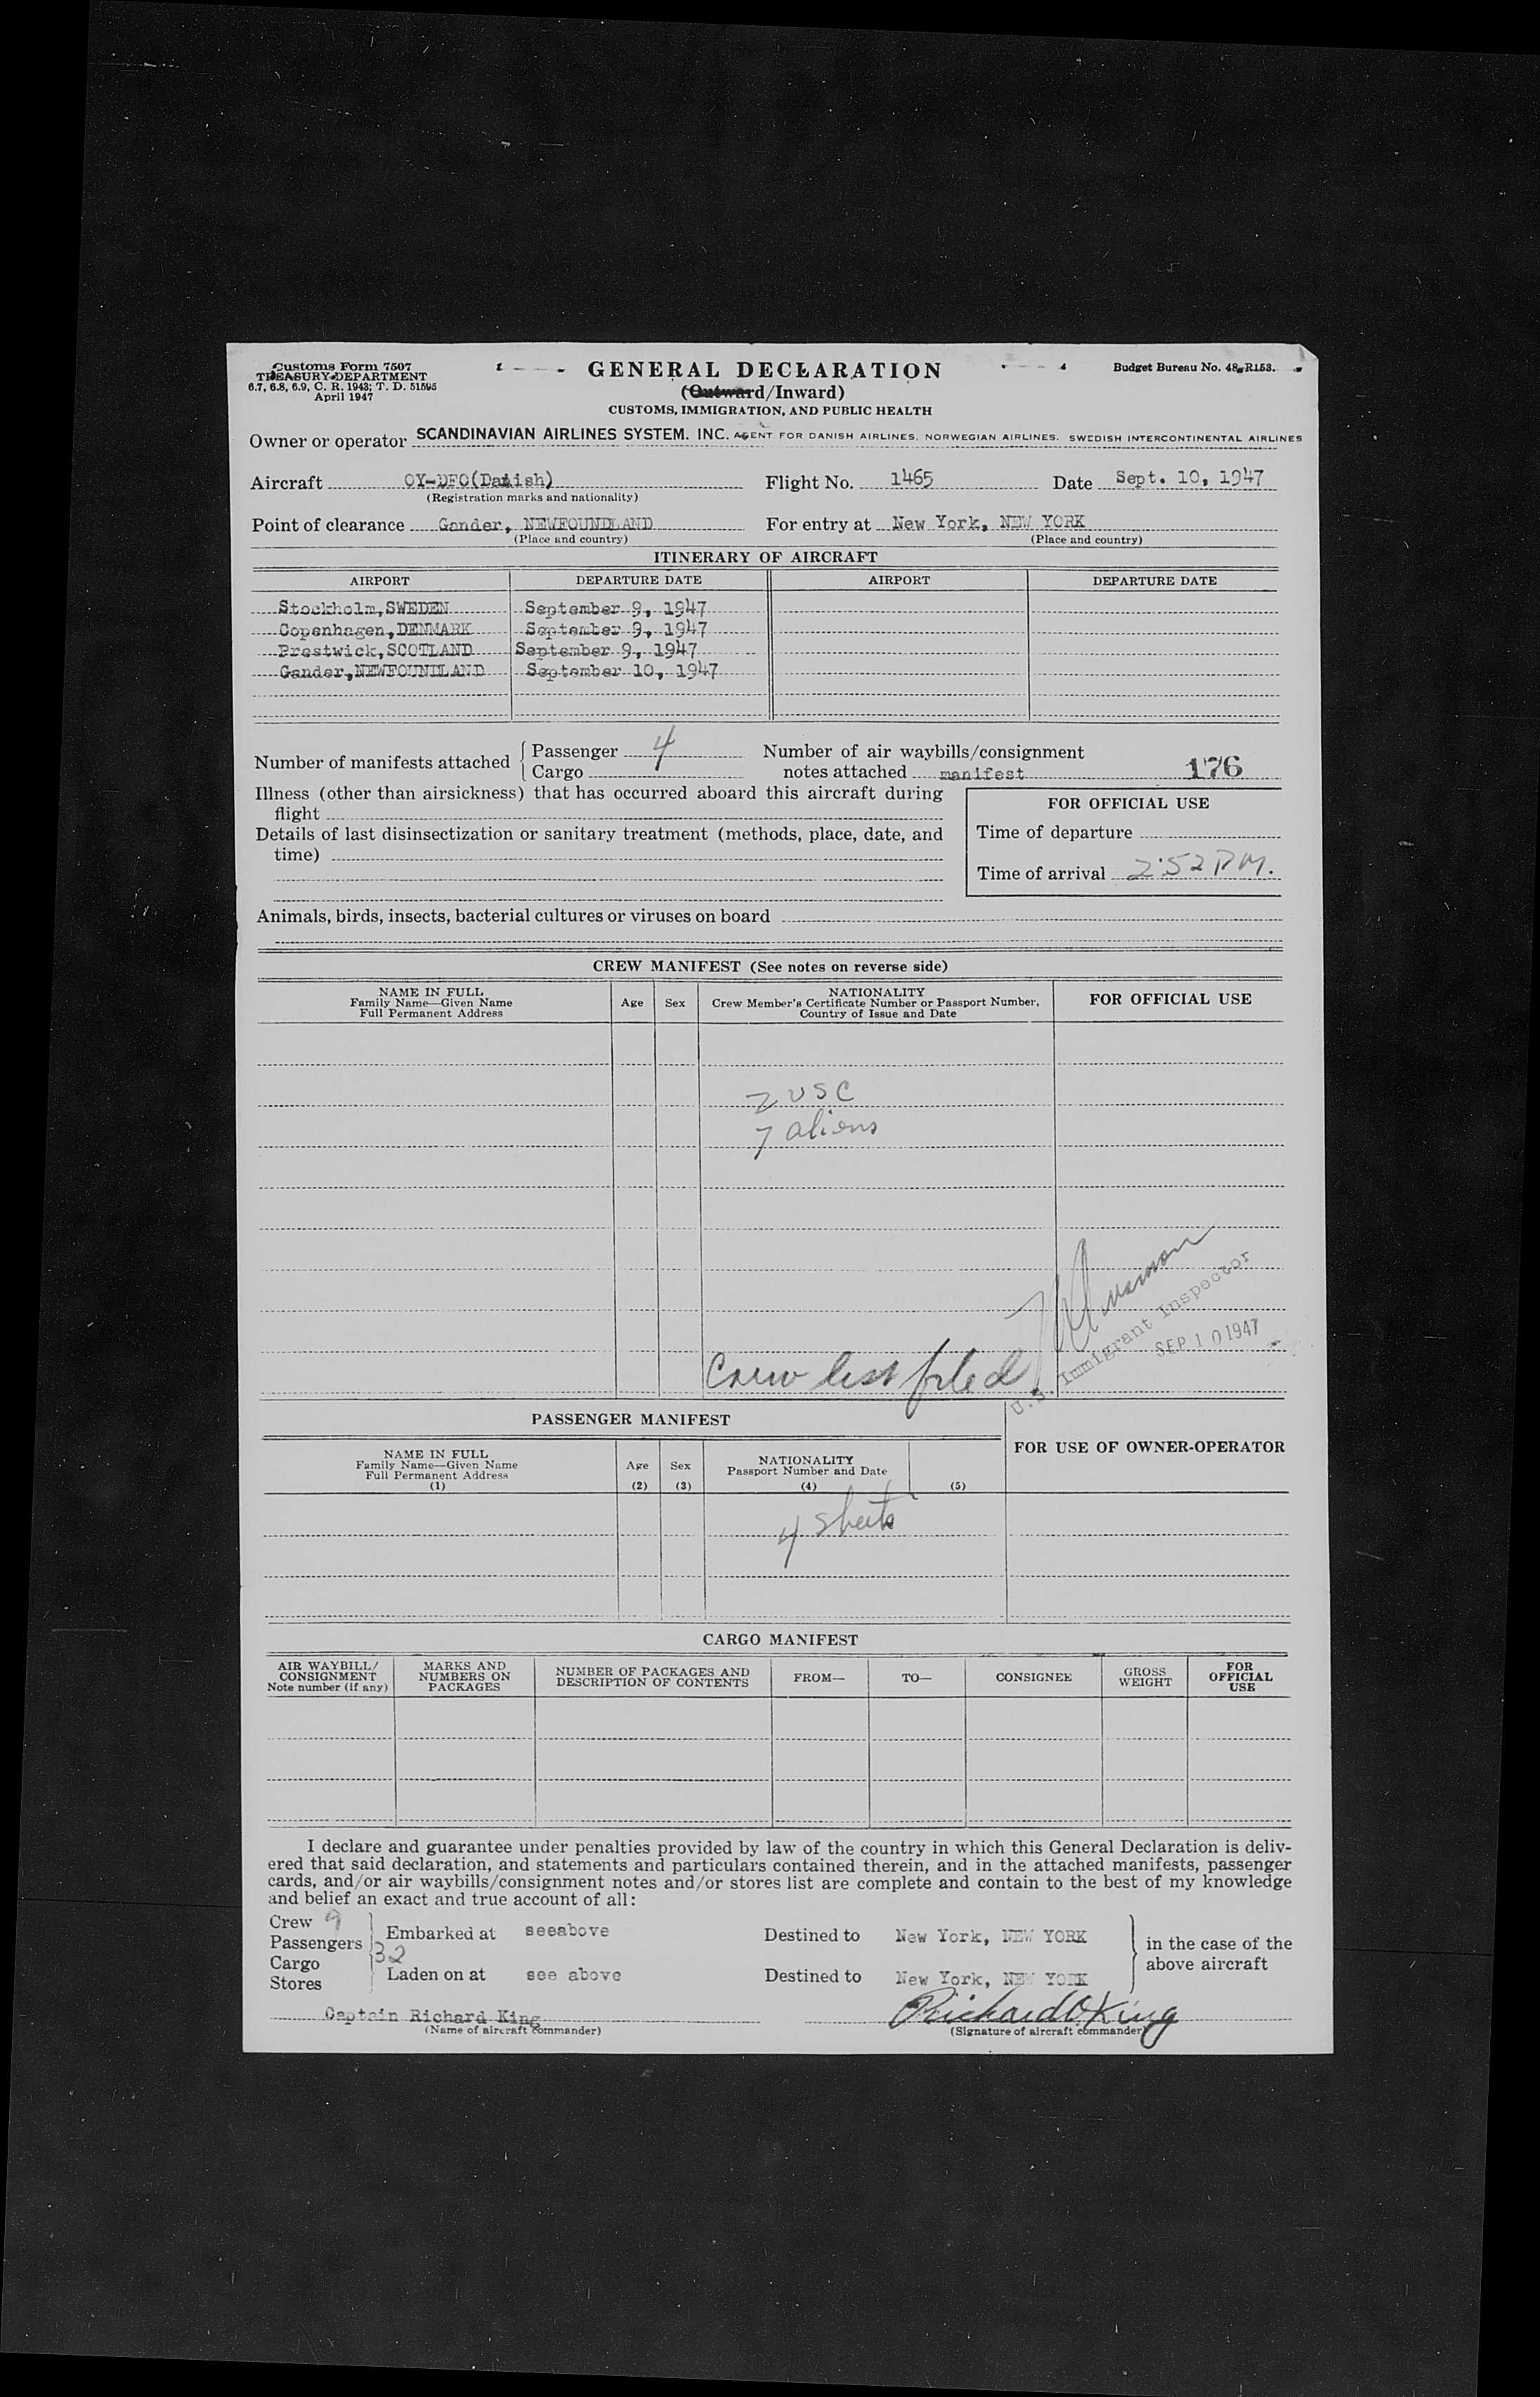 Customs Form 7507
TREASURY DEPARTMENT
6.7, 6.8, 6.9, C. R. 1943; T. D. 51595
April 1947
GENERAL DECLARATION
(Outward/Inward)
CUSTOMS, IMMIGRATION, AND PUBLIC HEALTH
Budget Bureau No. 48-R153.
Owner or operator SCANDINAVIAN AIRLINES SYSTEM. INC. AGENT FOR DANISH AIRLINES. NORWEGIAN AIRLINES. SWEDISH INTERCONTINENTAL AIRLINES
Aircraft OY-DFO(Danish) Flight No. 1465 Date Sept. 10, 1947
(Registration marks and nationality)
Point of clearance Gander, NEWFOUNDLAND For entry at New York, NEW YORK
(Place and country) (Place and country)
ITINERARY OF AIRCRAFT
AIRPORT DEPARTURE DATE AIRPORT DEPARTURE DATE
Stockholm,SWEDEN September 9, 1947
Copenhagen,DENMARK September 9, 1947
Prestwick,SCOTLAND September 9, 1947
Gander,NEWFOUNDLAND September 10, 1947
Number of manifests attached { Passenger 4 Number of air waybills/consignment
Cargo notes attached manifest 176
Illness (other than airsickness) that has occurred aboard this aircraft during
flight
Details of last disinsectization or sanitary treatment (methods, place, date, and
time)
FOR OFFICIAL USE
Time of departure
Time of arrival 2:52 PM.
Animals, birds, insects, bacterial cultures or viruses on board
CREW MANIFEST (See notes on reverse side)
NAME IN FULL
Family Name—Given Name
Full Permanent Address
Age Sex
NATIONALITY
Crew Member's Certificate Number or Passport Number,
Country of Issue and Date
FOR OFFICIAL USE
2 USC
7 aliens
U.S. Immigrant Inspector
SEP 10 1947
Crew list filed
PASSENGER MANIFEST
FOR USE OF OWNER-OPERATOR
NAME IN FULL
Family Name—Given Name
Full Permanent Address
(1)
Age
(2)
Sex
(3)
NATIONALITY
Passport Number and Date
(4) (5)
4 sheets
CARGO MANIFEST
AIR WAYBILL/
CONSIGNMENT
Note number (if any)
MARKS AND
NUMBERS ON
PACKAGES
NUMBER OF PACKAGES AND
DESCRIPTION OF CONTENTS
FROM— TO— CONSIGNEE
GROSS
WEIGHT
FOR
OFFICIAL
USE
I declare and guarantee under penalties provided by law of the country in which this General Declaration is deliv-
ered that said declaration, and statements and particulars contained therein, and in the attached manifests, passenger
cards, and/or air waybills/consignment notes and/or stores list are complete and contain to the best of my knowledge
and belief an exact and true account of all:
Crew 9
Passengers 32
Cargo
Stores
Embarked at seeabove Destined to New York, NEW YORK
Laden on at see above Destined to New York, NEW YORK
in the case of the
above aircraft
Captain Richard King Richard O King
(Name of aircraft commander) (Signature of aircraft commander)